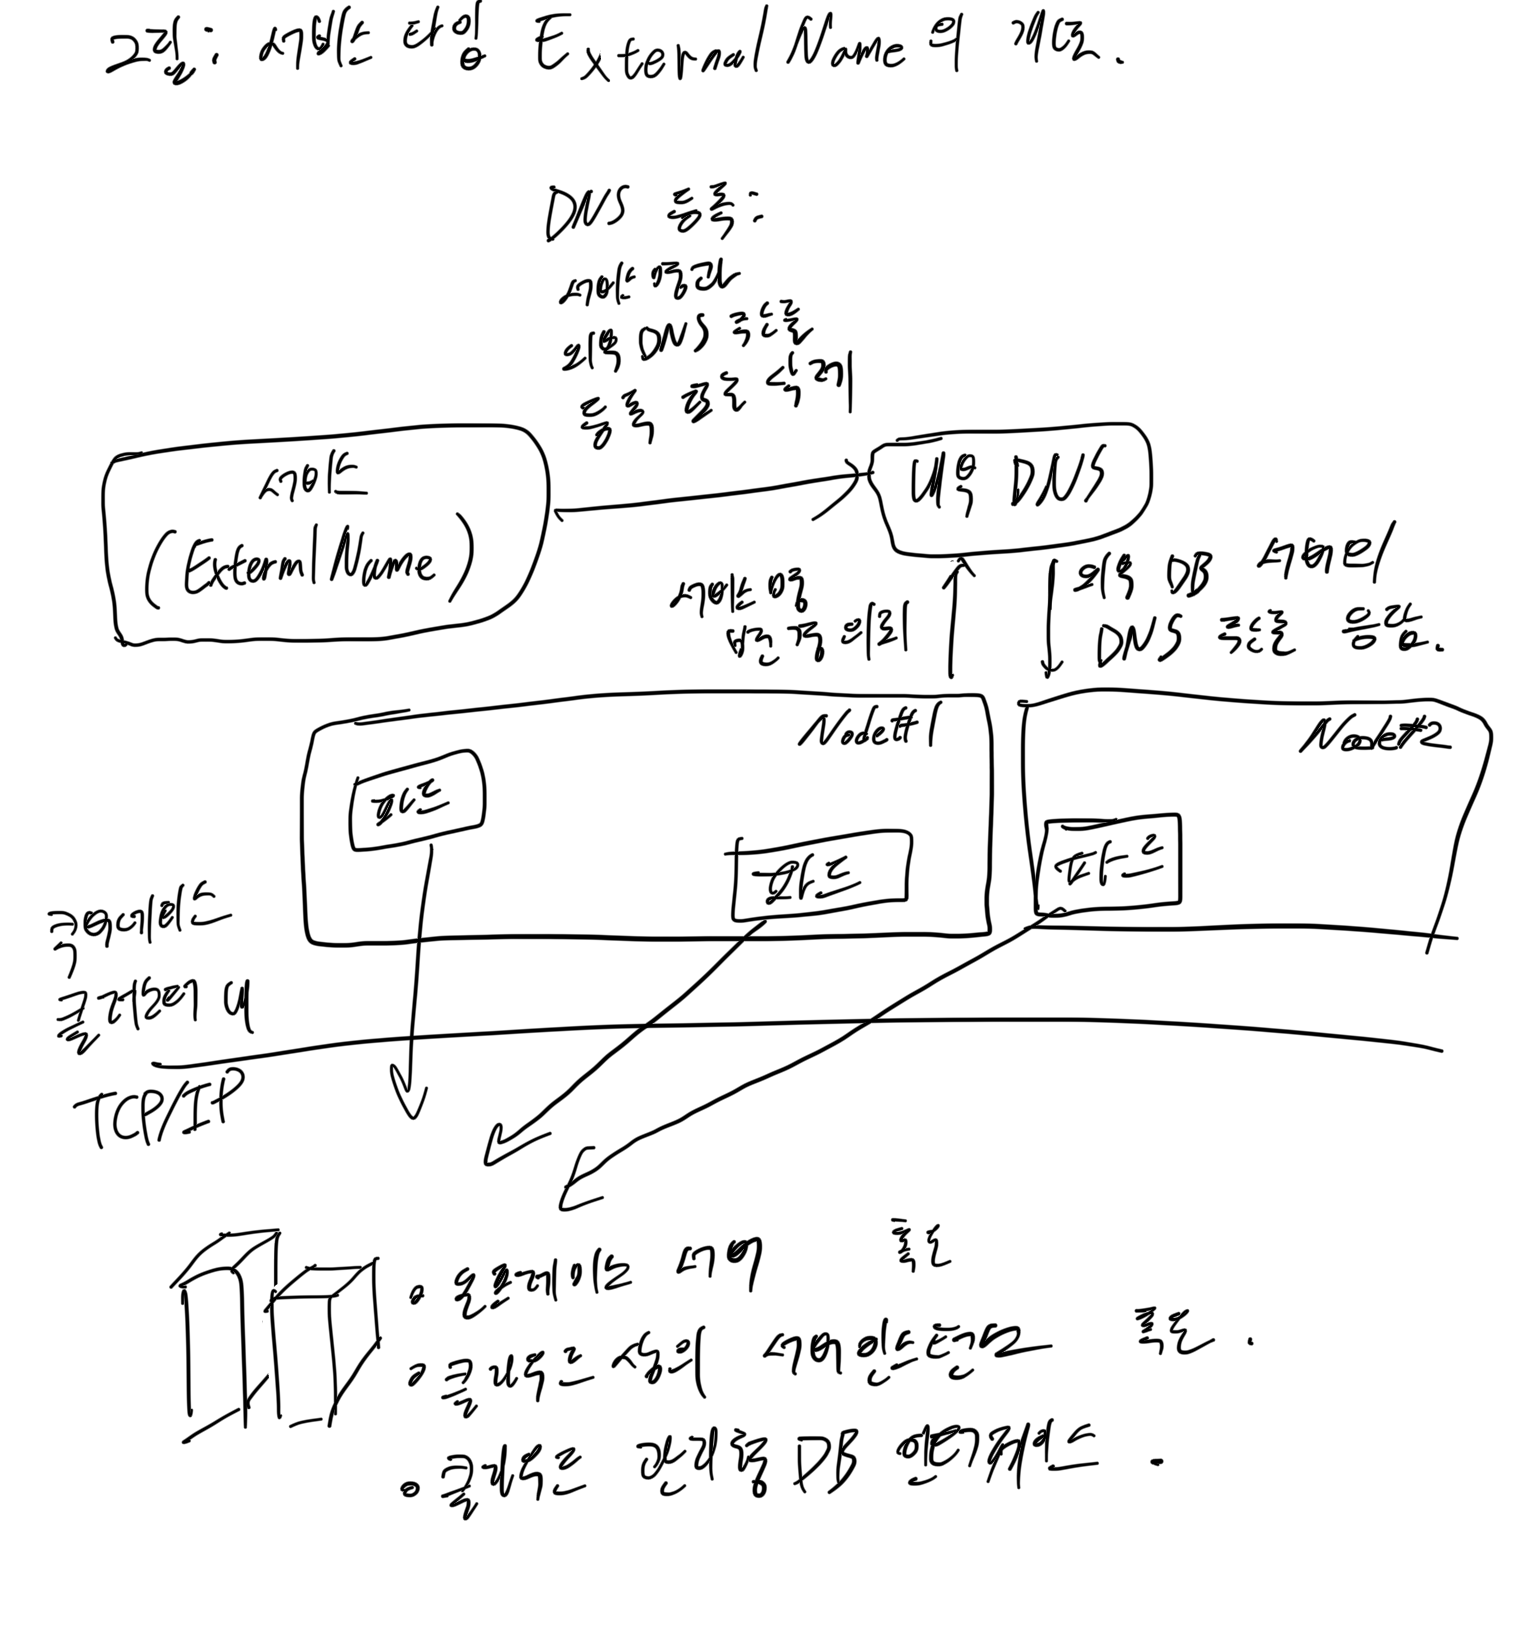 그림: 서비스 타입 ExternalName의 개요.
DNS 등록:
서비스 명과
외부 DNS 주소를
등록 또는 삭제
서비스
(ExternalName)
내부 DNS
서비스 명
변경 의뢰
외부 DB 서버의
DNS 주소를 응답.
Node#1
Node#2
파드
파드
파드
쿠버네티스
클러스터 내
TCP/IP
• 온프레미스 서버 혹은
• 클라우드 상의 서버 인스턴스 혹은.
• 클라우드 관리형 DB 인터페이스.